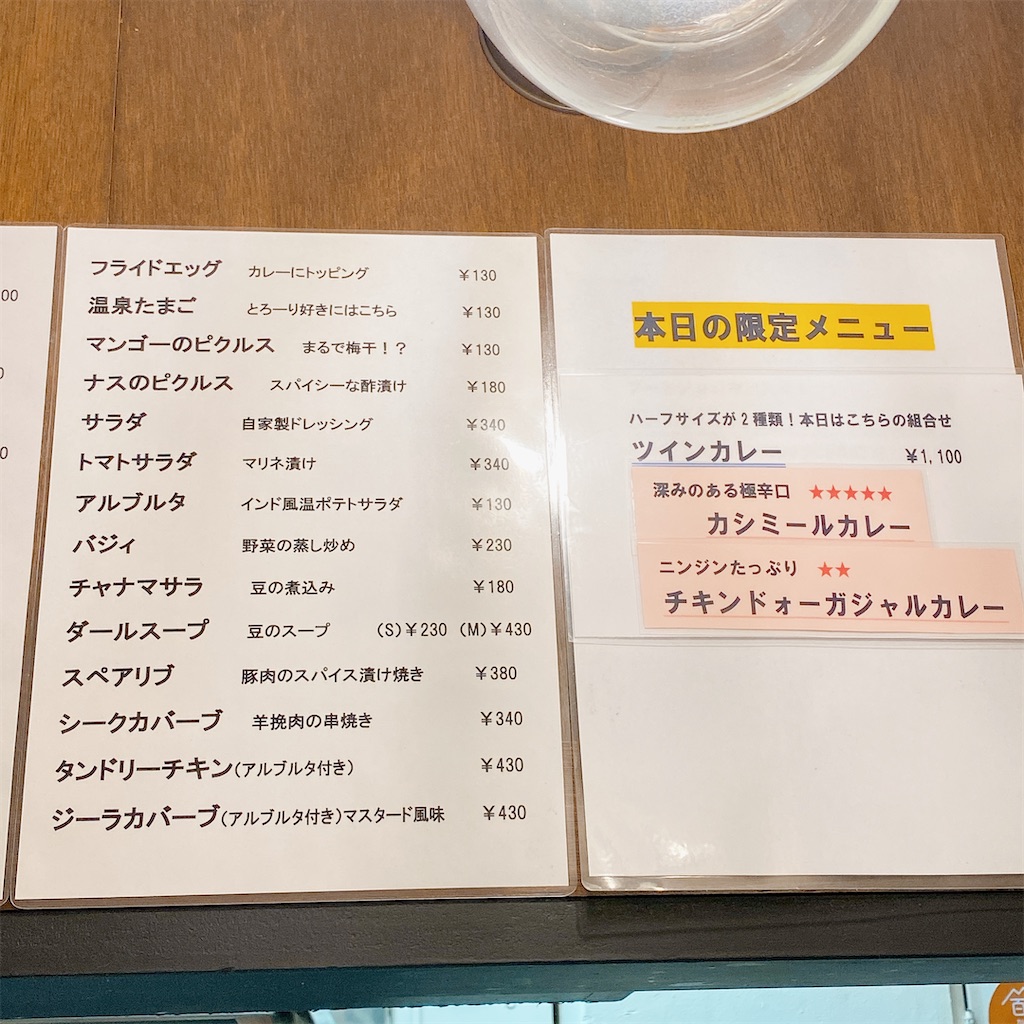 00
0
0
フライドエッグ カレーにトッピング ￥130
温泉たまご とろーり好きにはこちら ￥130
マンゴーのピクルス まるで梅干！？ ￥130
ナスのピクルス スパイシーな酢漬け ￥180
サラダ 自家製ドレッシング ￥340
トマトサラダ マリネ漬け ￥340
アルブルタ インド風温ポテトサラダ ￥130
バジィ 野菜の蒸し炒め ￥230
チャナマサラ 豆の煮込み ￥180
ダールスープ 豆のスープ (S)￥230 (M)￥430
スペアリブ 豚肉のスパイス漬け焼き ￥380
シークカバーブ 羊挽肉の串焼き ￥340
タンドリーチキン(アルブルタ付き) ￥430
ジーラカバーブ(アルブルタ付き)マスタード風味 ￥430
本日の限定メニュー
ハーフサイズが2種類！本日はこちらの組合せ
ツインカレー ￥1,100
深みのある極辛口 ★★★★★
カシミールカレー
ニンジンたっぷり ★★
チキンドォーガジャルカレー